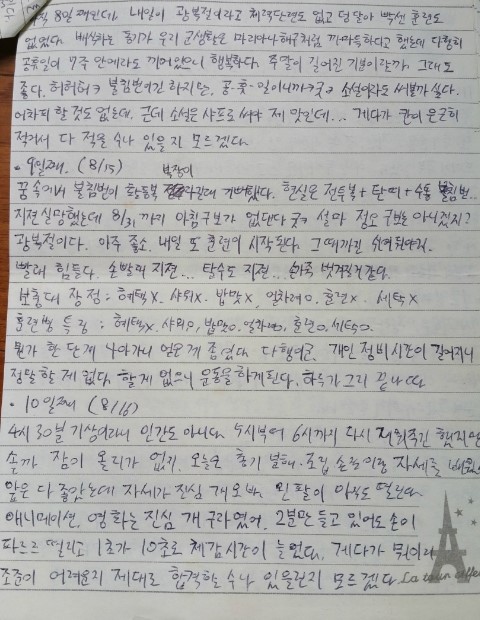 8일째인데, 내일이 광복절이라고 체력단련도 없고 덩달아 빡센 훈련도
없었다. 배식하는 동기가 우리 군생활은 마리아나해구처럼 까마득하다고 했는데 다행히
공휴일이 7주 안에라도 끼어있으니 행복하다. 주말이 길어진 기분이랄까, 그래도
좋다. 허허허ㅋ 불침번이긴 하지만, 공·휴·일이니까ㅋ 소설이라도 써볼까 싶다.
어차피 할 것도 없는데. 근데 소설은 샤프로 써야 제 맛인데... 게다가 칸이 은근히
적어서 다 적을 수나 있을지 모르겠다.
· 9일째. (8/15)
꿈 속에서 불침번이 활동복 복장이라길래 기뻐했다. 현실은 전투복 + 탄띠 + 수통 불침번..
지젼 실망했는데 8/31까지 아침구보가 없단다 굿ㅋ 설마 정오 구보는 아니겠지?
광복절이다. 아주 좋소. 내일 또 훈련이 시작된다. 그때까진 쉬어둬야지.
빨래 힘들다. 손빨래 지젼... 탈수도 지젼... 가죽 벗겨질거 같다.
보충대 장점 : 혜택X. 샤워X. 밥맛X, 일과시O. 훈련X. 세탁X
훈련병 특징 : 혜택X. 샤워O, 밥맛O. 훈련O. 세탁O.
뭔가 한 단계 나아가니 얻은게 좀 있다. 다행이군. 개인 정비시간이 길어지니
정말 할 게 없다. 할게 없으니 운동을 하게된다. 하루가 그리 끝나따
· 10일째 (8/16)
4시 30분 기상이라니 인간도 아니다. 5시부터 6시까지 다시 재워주긴 했지만
솔까 잠이 올리가 없지. 오늘은 총기 분해·조립 손질이랑 자세를 배웠는데
앞은 다 좋았는데 자세가 진심 개오바. 왼팔이 아직도 떨린다.
애니메이션, 영화는 진심 개구라였어. 2분만 들고 있어도 손이
파르르 떨리고 1초가 10초로 체감시간이 늘었다. 게다가 뭐이리
조준이 어려운지 제대로 합격할 수나 있을런지 모르겠다.
La tour eiffel